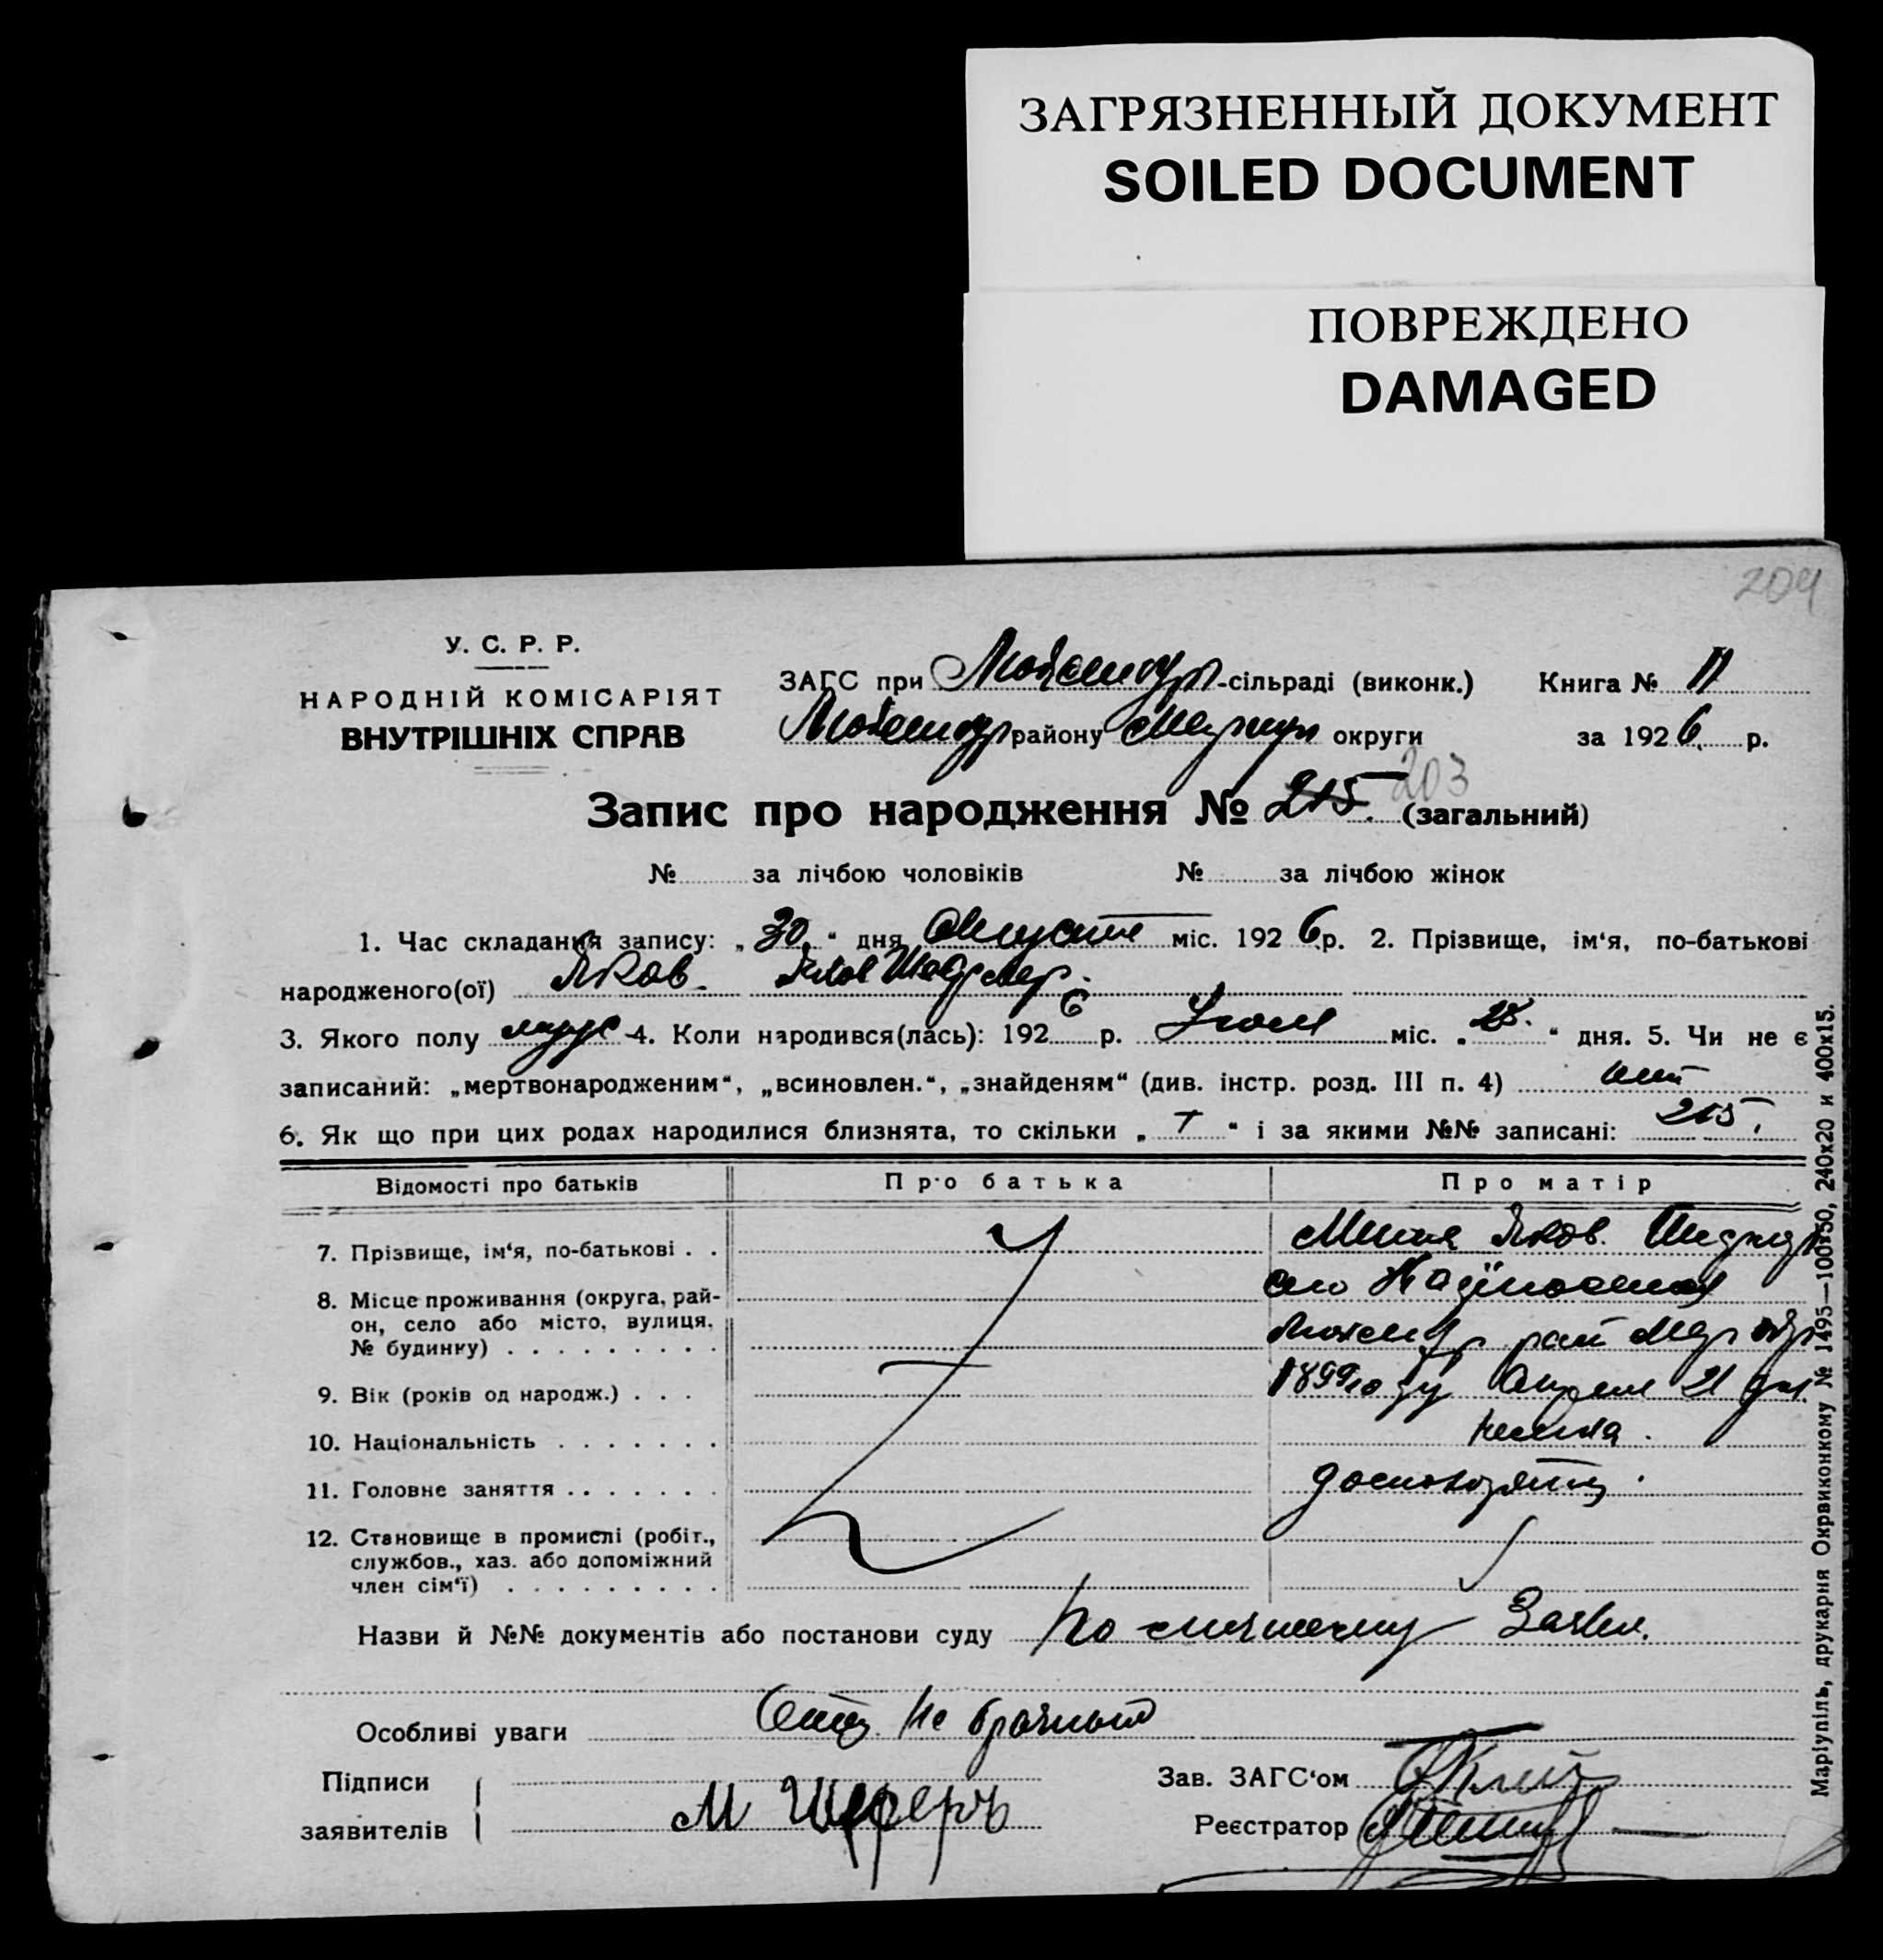 ЗАГРЯЗНЕННЫЙ ДОКУМЕНТ
SOILED DOCUMENT
ПОВРЕЖДЕНО
DAMAGED
204
У. С. Р. Р.
НАРОДНІЙ КОМІСАРІЯТ
ВНУТРІШНІХ СПРАВ
ЗАГС при Люксембур -сільраді (виконк.) Книга № II
Люксембур району Мариуп округи за 1926 р.
203
Запис про народження № 215. (загальний)
№ за лічбою чоловіків № за лічбою жінок
1. Час складання запису: „30“ дня Августа міс. 1926 р. 2. Прізвище, ім‘я, по-батькові
народженого(ої) Яков.
3. Якого полу 4. Коли народився(лась): 1926 р. Июля міс. „25.“ дня. 5. Чи не є
записаний: „мертвонародженим“, „всиновлен.“, „знайденям“ (див. інстр. розд. III п. 4) нет
6. Як що при цих родах народилися близнята, то скільки „ “ і за якими №№ записані: 215.
Відомості про батьків Про батька Про матір
7. Прізвище, ім‘я, по-батькові . . Яков.
8. Місце проживання (округа, рай-
он, село або місто, вулиця,
№ будинку) . . . . . . . . . Люксембур рай Мар окр
9. Вік (років од народж.) . . . 1899 году Апреля 21 дня
10. Національність . . . . . . . немка.
11. Головне заняття . . . . . . .
12. Становище в промислі (робіт.,
службов., хаз. або допоміжний
член сім‘ї) . . . . . . . . .
Назви й №№ документів або постанови суду по личному Заявл.
Особливі уваги Отец не брачный
Підписи
заявителів М
Зав. ЗАГС‘ом
Реєстратор
Маріупіль, друкарня Окрвиконкому № 1495—100×50, 240x20 и 400x15.